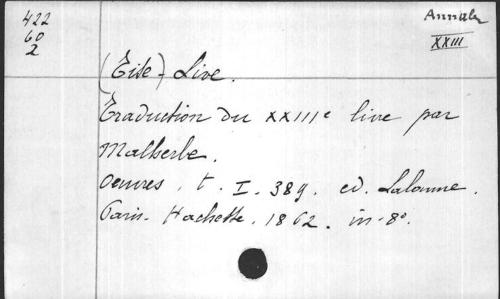 422
60
2
Annales
XXIII
(Tite)-Live.
Traduction du XXIIIe livre par
Malherbe.
Oeuvres. t. I. 389. ed. Lalanne.
Paris. Hachette. 1862. in-8o.